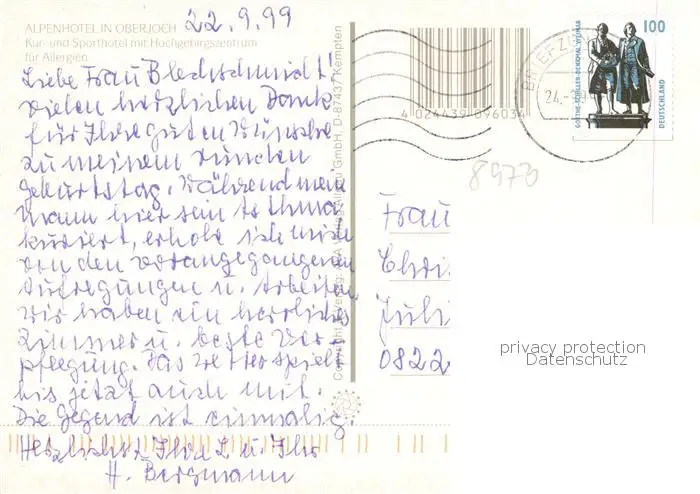 22.9.99
ALPENHOTEL IN OBERJOCH
Kur- und Sporthotel mit Hochgebirgszentrum
für Allergien
Liebe Frau Blechschmidt!
vielen herzlichen Dank
für Ihre guten Wünsche
zu meinem runden
Geburtstag. Während mein
Mann hier sein Asthma
kuriert, erhole ich mich
von den vorangegangenen
Aufregungen u. Arbeiten.
Wir haben ein herrliches
Zimmer u. beste Ver-
pflegung. Das Wetter spielt
bis jetzt auch mit.
Die Gegend ist einmalig.
Herzlichst Ihre L. u. Ihr
H. Bergmann
GmbH, D-87437 Kempten
4 024439 096034
BRIEFZ
24.-9.
GOETHE-SCHILLER-DENKMAL WEIMAR
100
DEUTSCHLAND
8973
Frau
Chri
Juli
0822
privacy protection
Datenschutz